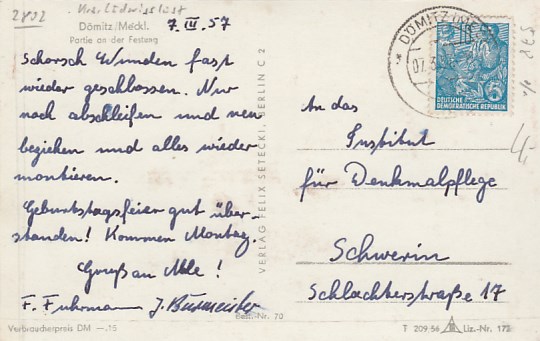 2802
Krs. Ludwigslust
Dömitz/Meckl.
Partie an der Festung
7. III. 57
Schorsch Wunden fast
wieder geschlossen. Nur
noch abschleifen und neu
beziehen und alles wieder
montieren.
Geburtstagsfeier gut über-
standen! Kommen Montag.
Gruß an Alle!
F. Fuhrmann J. Burmeister
Best.-Nr. 70
Verbraucherpreis DM —.15
VERLAG FELIX SETECKI, BERLIN C 2
DÖMITZ
07.3.
DEUTSCHE
DEMOKRATISCHE REPUBLIK
An das
Institut
für Denkmalpflege
Schwerin
Schlachterstraße 17
T 209 56 Liz.-Nr. 172